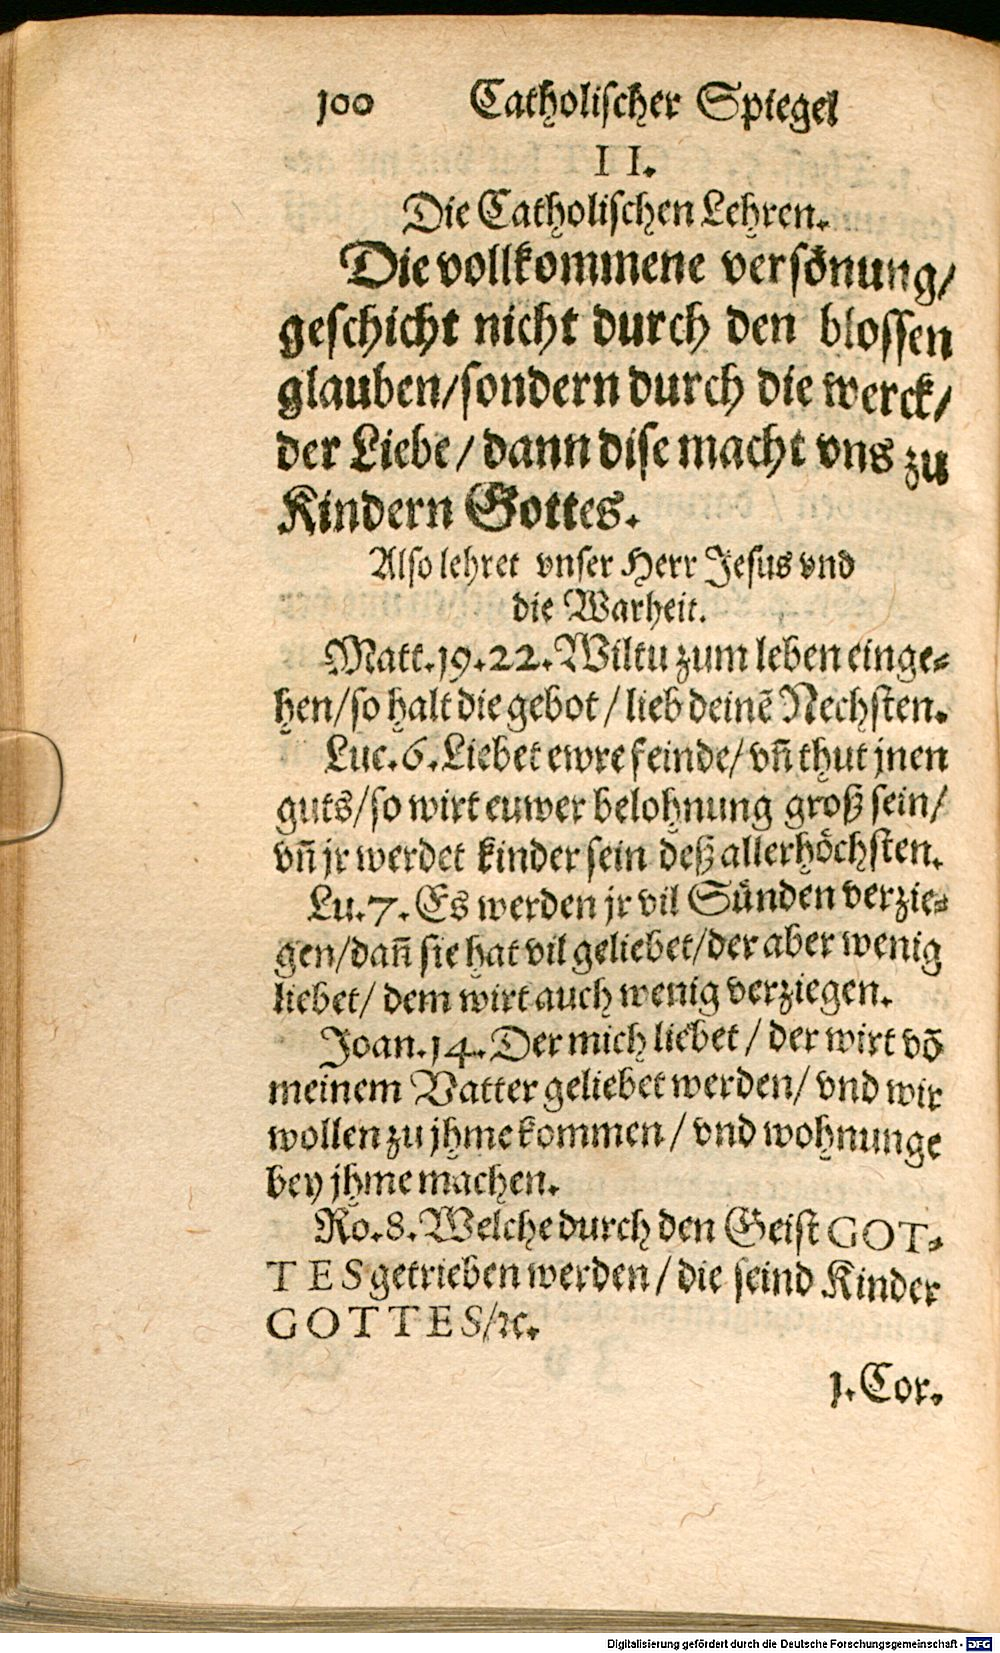 100 Catholischer Spiegel
II.
Die Catholischen Lehren.
Die vollkommene versönung/
geschicht nicht durch den blossen
glauben/sondern durch die werck/
der Liebe/ dann dise macht vns zu
Kindern Gottes.
Also lehret vnser Herr Jesus vnd
die Warheit.
Matt.19.22.Wiltu zum leben einge-
hen/so halt die gebot/lieb deinẽ Nechsten.
Luc.6.Liebet ewre feinde/vñ thut jnen
guts/so wirt euwer belohnung groß sein/
vñ jr werdet kinder sein deß allerhöchsten.
Lu.7.Es werden jr vil Sünden verzie-
gen/dañ sie hat vil geliebet/der aber wenig
liebet/ dem wirt auch wenig verziegen.
Joan.14.Der mich liebet/ der wirt võ
meinem Vatter geliebet werden/ vnd wir
wollen zu jhme kommen/ vnd wohnunge
bey jhme machen.
Ro.8.Welche durch den Geist GOT-
TES getrieben werden/ die seind Kinder
GOTTES/ꝛc.
1.Cor.
Digitalisierung gefördert durch die Deutsche Forschungsgemeinschaft - DFG